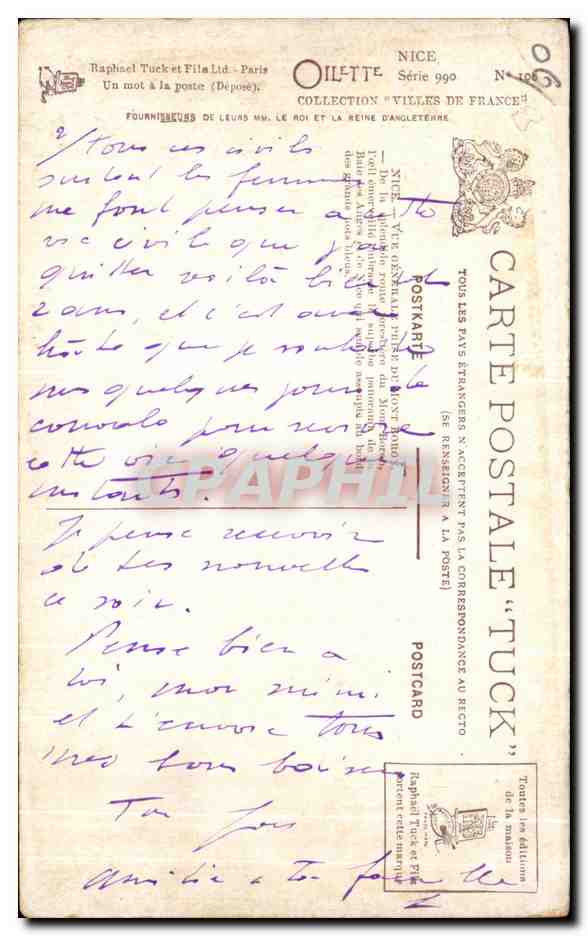 Raphael Tuck et Fils Ltd. - Paris
Un mot à la poste (Déposé).
OILETTE
NICE
Série 990 N° 106
COLLECTION "VILLES DE FRANCE"
FOURNISSEURS DE LEURS MM. LE ROI ET LA REINE D'ANGLETERRE
06
90
CARTE POSTALE "TUCK"
TOUS LES PAYS ÉTRANGERS N'ACCEPTENT PAS LA CORRESPONDANCE AU RECTO
(SE RENSEIGNER A LA POSTE)
POSTKARTE
POSTCARD
NICE. — VUE GÉNÉRALE PRISE DU MONT BORON.
— De la splendide route forestière du Mont Boron,
l'œil émerveillé embrasse le superbe panorama de la
Baie des Anges et de Nice qui semble assoupie au bord
des grands flots bleus.
Toutes les éditions
de la maison
Raphael Tuck et Fils
portent cette marque
2/ tous ces civils
surtout les femmes
me font penser à cette
vie civile que j'ai
quitter voilà bientôt
2 ans, et c'est avec
hâte que je
mes quelques jours de
convalo pour revivre
cette vie quelques
instants.
Je pense recevoir
de tes nouvelles
ce soir.
Pense bien à
toi, mon mimi
et t'envoie tous
mes bons baisers
Ton
amitié à ta famille
CPAPHIL